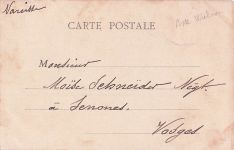 CARTE POSTALE
Monsieur
Moïse Schneider Negt.
à Senones.
Vosges